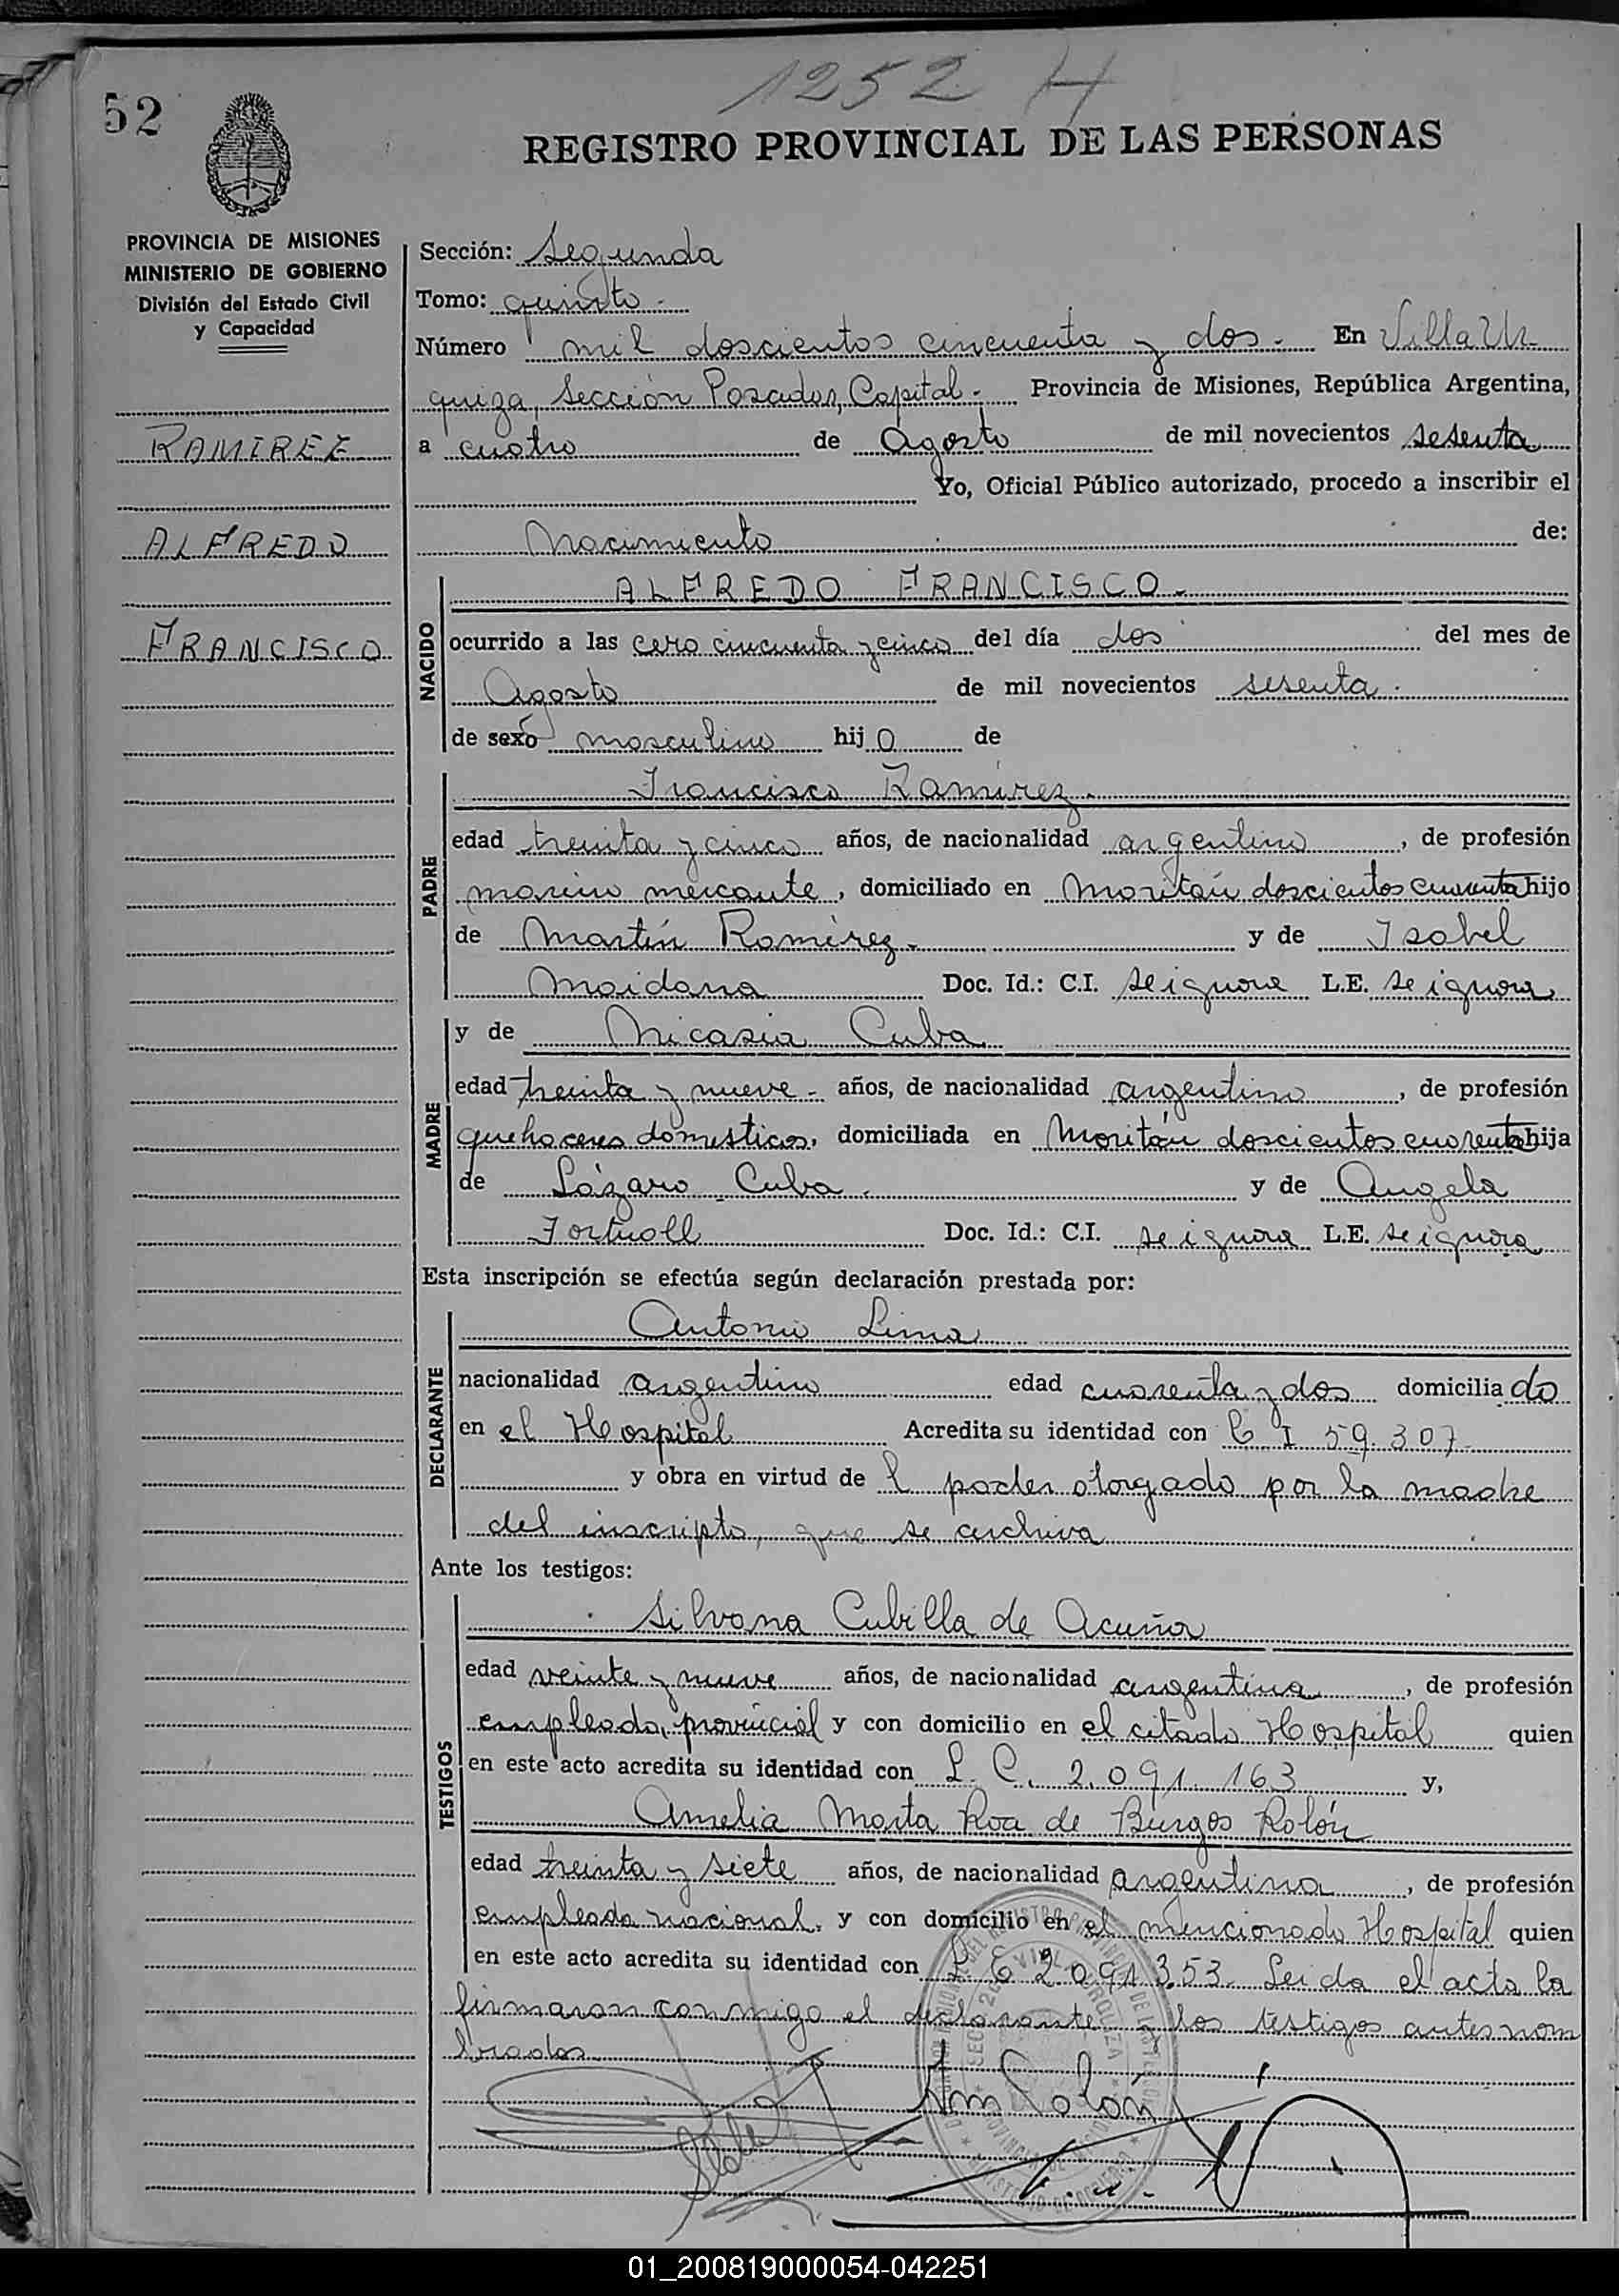 1252 H
52
REGISTRO PROVINCIAL DE LAS PERSONAS
PROVINCIA DE MISIONES
MINISTERIO DE GOBIERNO
División del Estado Civil
y Capacidad
RAMIREZ
ALFREDO
FRANCISCO
Sección: Segunda
Tomo: quinto.-
Número mil doscientos cincuenta y dos.- En Villa Ur-
quiza, Sección Posadas, Capital.- Provincia de Misiones, República Argentina,
a cuatro de Agosto de mil novecientos sesenta
Yo, Oficial Público autorizado, procedo a inscribir el
Nacimiento de:
NACIDO
ALFREDO FRANCISCO.-
ocurrido a las cero cincuenta y cinco del día dos del mes de
Agosto de mil novecientos sesenta.
de sexo masculino hijo de
PADRE
Francisco Ramírez.
edad treinta y cinco años, de nacionalidad argentino, de profesión
marino mercante, domiciliado en Moritán doscientos cuarenta hijo
de Martín Ramírez.- y de Isabel
Maidana Doc. Id.: C.I. se ignora L.E. se ignora
MADRE
y de Nicasia Cuba
edad treinta y nueve - años, de nacionalidad argentina, de profesión
quehaceres domesticos, domiciliada en Moritán doscientos cuarenta hija
de Lázaro Cuba. y de Angela
Doc. Id.: C.I. se ignora L.E. se ignora
Esta inscripción se efectúa según declaración prestada por:
DECLARANTE
Antonio Lima
nacionalidad argentino edad cuarenta y dos domiciliado
en el Hospital Acredita su identidad con C I 59.307
y obra en virtud de l poder otorgado por la madre
del inscripto, que se archiva
Ante los testigos:
TESTIGOS
Silvana Cubilla de Acuña
edad veinte y nueve años, de nacionalidad argentina, de profesión
empleada provincial y con domicilio en el citado Hospital quien
en este acto acredita su identidad con L. C. 2.091.163 y,
Amelia Marta Roa de Burgos Rolón
edad treinta y siete años, de nacionalidad argentina, de profesión
empleada nacional, y con domicilio en el mencionado Hospital quien
en este acto acredita su identidad con L C 2.091.353. Leida el acta la
firmaron conmigo el declarante y los testigos antes nom
brados
01_200819000054-042251